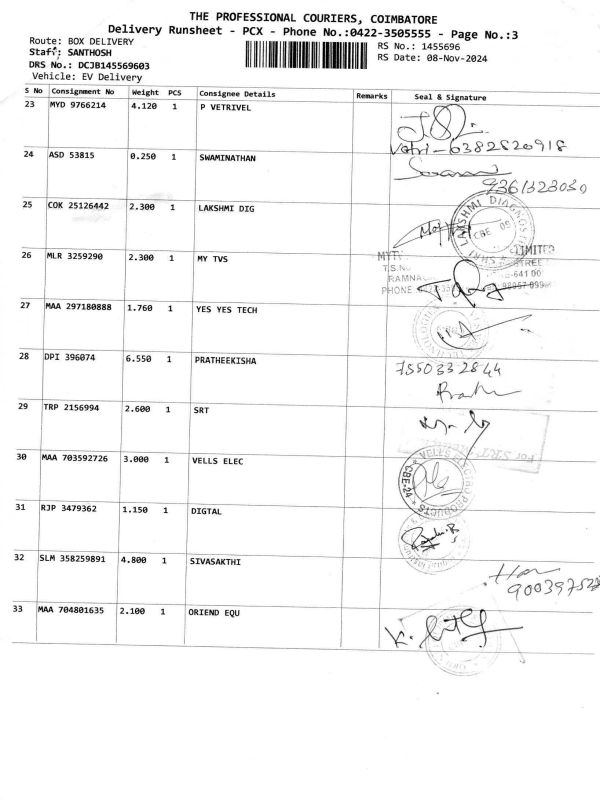 THE PROFESSIONAL COURIERS, COIMBATORE
Delivery Runsheet - PCX - Phone No.:0422-3505555 - Page No.:3
Route: BOX DELIVERY
RS No.: 1455696
Staff: SANTHOSH
RS Date: 08-Nov-2024
DRS No.: DCJB145569603
Vehicle: EV Delivery
S No Consignment No Weight PCS Consignee Details Remarks Seal & Signature
23 MYD 9766214 4.120 1 P VETRIVEL
24 ASD 53815 0.250 1 SWAMINATHAN
9361323030
25 COK 25126442 2.300 1 LAKSHMI DIG
LAKSHMI DIAGNOS
CBE 09
26 MLR 3259290 2.300 1 MY TVS
LIMITED
PHONE
27 MAA 297180888 1.760 1 YES YES TECH
28 DPI 396074 6.550 1 PRATHEEKISHA
7550332844
29 TRP 2156994 2.600 1 SRT
For SRT
30 MAA 703592726 3.000 1 VELLS ELEC
VELLS
PRODUCTS
CBE-24
31 RJP 3479362 1.150 1 DIGTAL
32 SLM 358259891 4.800 1 SIVASAKTHI
33 MAA 704801635 2.100 1 ORIEND EQU